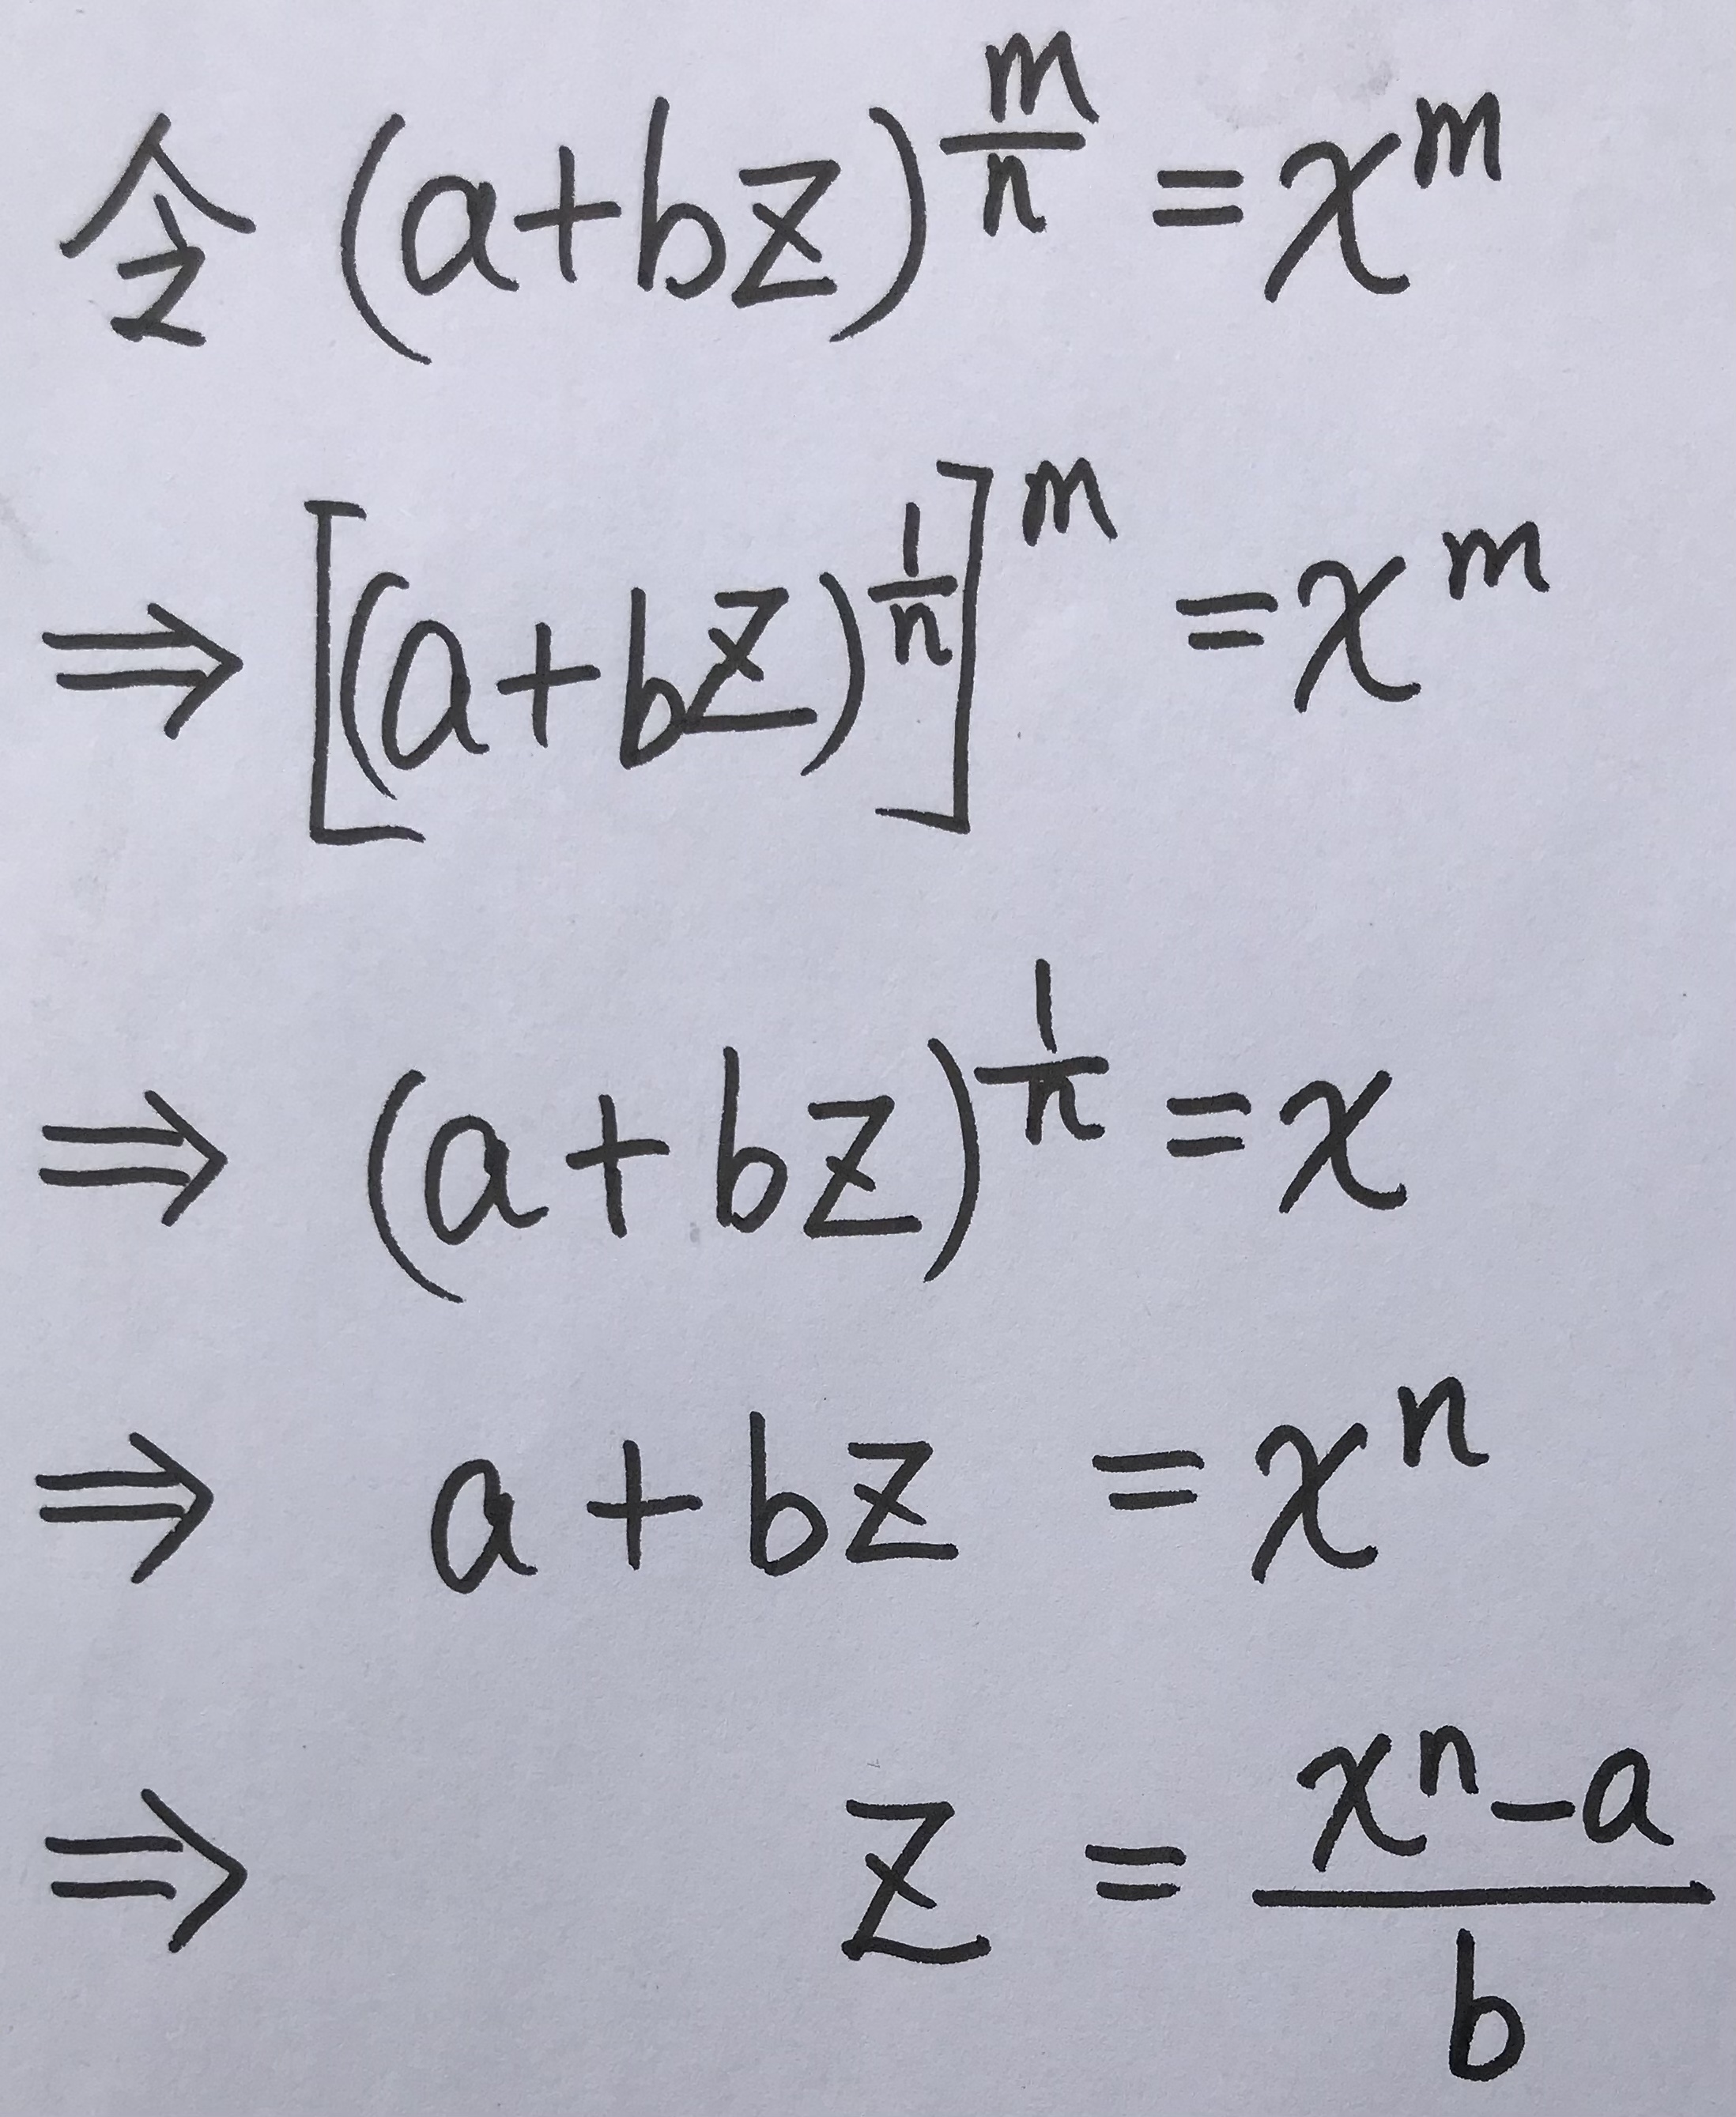 令 (a+bz)^{\frac{m}{n}} = x^m
⇒ [(a+bz)^{\frac{1}{n}}]^m = x^m
⇒ (a+bz)^{\frac{1}{n}} = x
⇒ a+bz = x^n
⇒ z = \frac{x^n-a}{b}